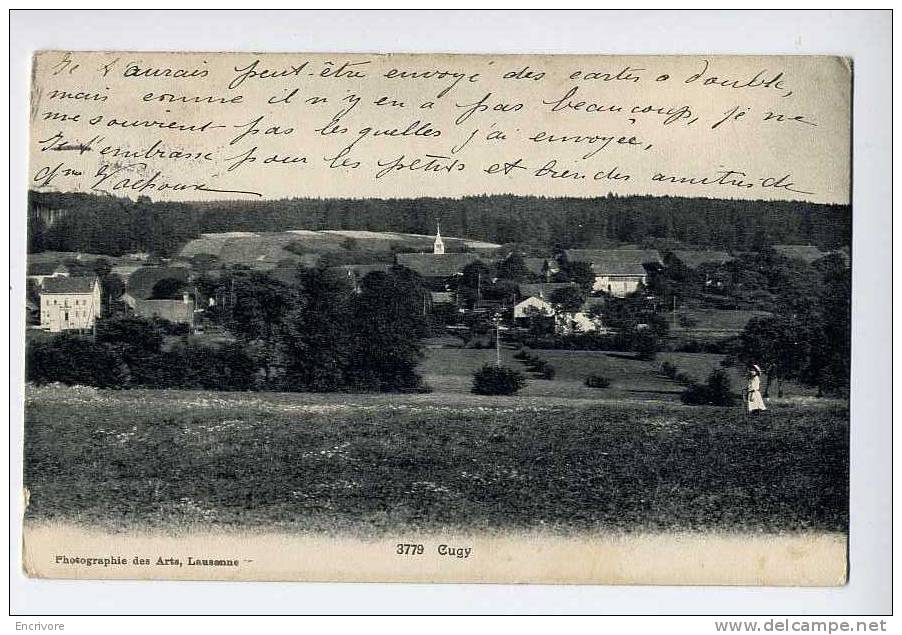 Je t'aurais peut-être envoyé des cartes à double,
mais comme il n'y en a pas beaucoup, je ne
me souvient pas les quelles j'ai envoyée,
Je t'embrasse pour les petits et bien des amitiés de
3779 Cugy
Photographie des Arts, Lausanne
Encrivore
www.delcampe.net